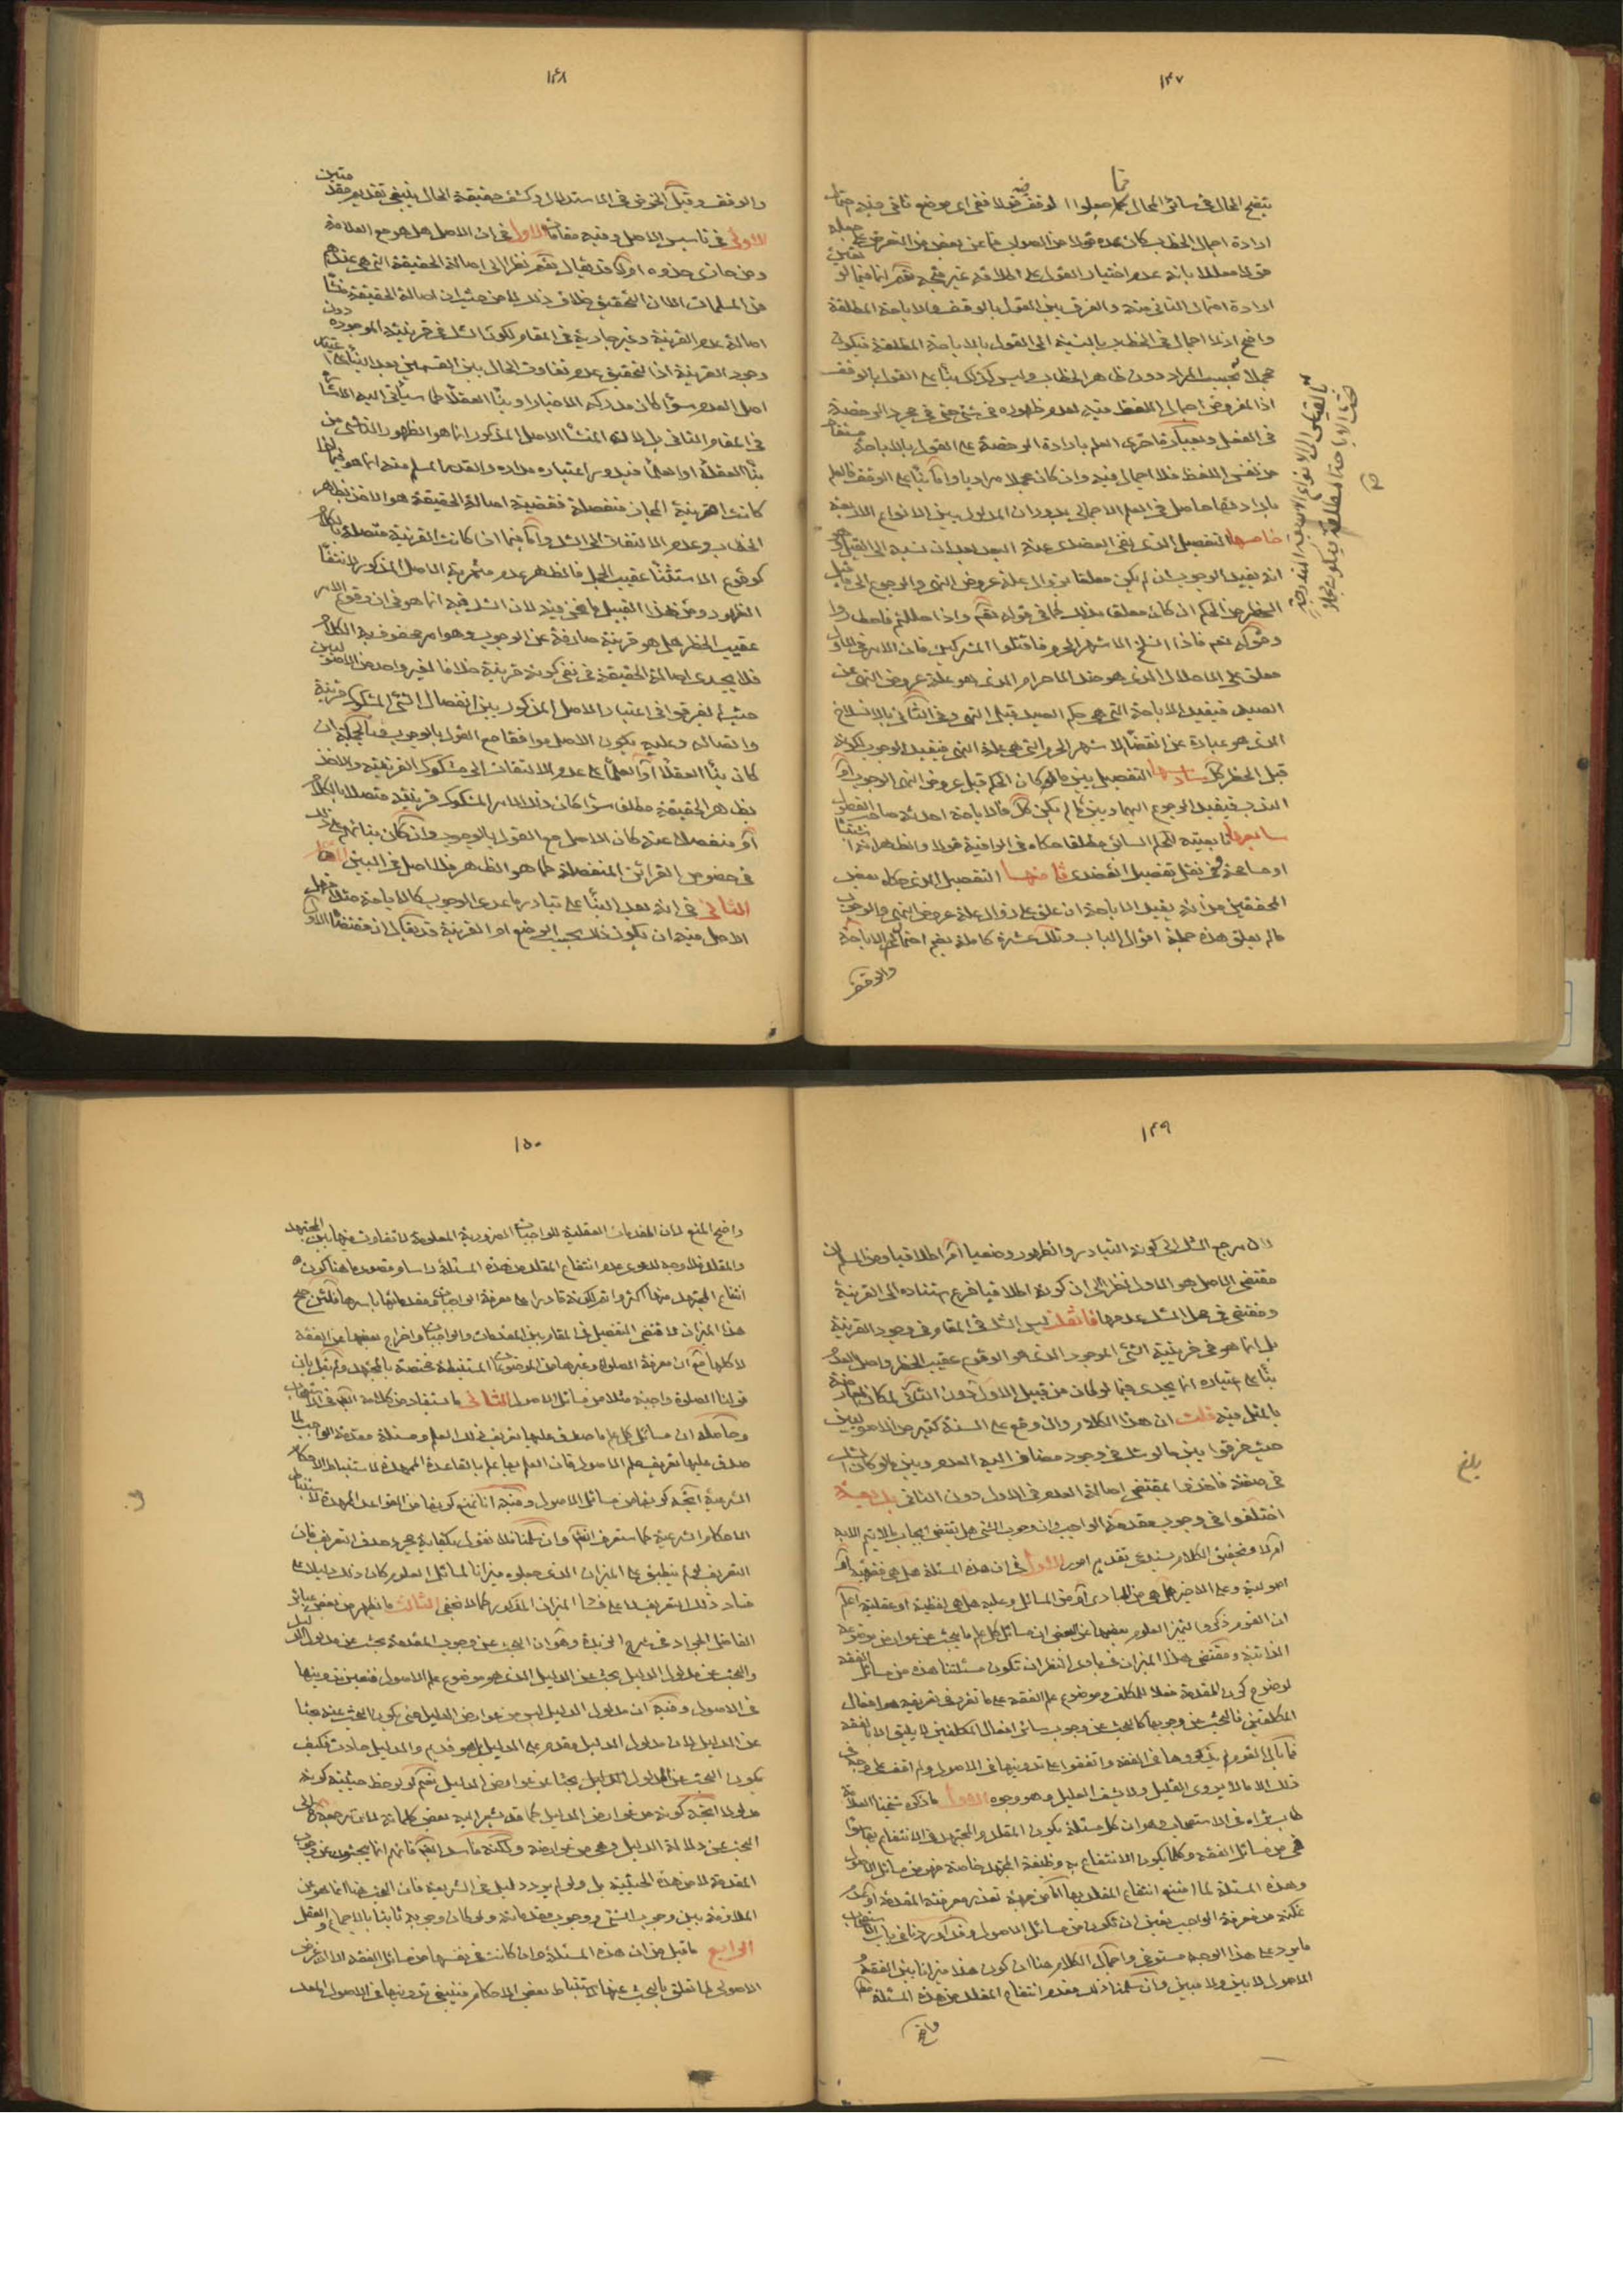 ١٤٧
يتضح الحال في سائر المحال
ارادة اجمال الخطاب كان عده قولا من الصواب
قولا معللا بانه عدم اختيار القول على اطلاقه غير متجه نعم انما فيما لو
ارادة احتمال الثاني منه والفرق بين القول بالوقف والاباحة المطلقة
واضح اذ لا اجمال في الخطاب بالنسبة الى القول بالاباحة المطلقة فيكون
مجملا بحسب المراد دون ظاهر الخطاب وليس كذلك بناء على القول بالوقف
اذ المفروض اجمال اللفظ فيه لعدم ظهوره في شئ حتى في مجرد الرخصة
في الفعل وبعبارة اخرى العلم بارادة الرخصة على القول بالاباحة مستفاد
من نفس اللفظ فلا اجمال فيه وان كان مجملا مراديا واما بناء على الوقف فالعلم
بارادتها حاصل في العلم الاجمالي بدوران المدلول بين الانواع الاربعة
خامسها التفصيل الذي
انه يفيد الوجوب ان لم يكن معلقا بزوال علة عروض النهي والرجوع الى ما قبل
الحظر من الحكم ان كان معلقا بذلك كما في قوله تعالى واذا حللتم فاصطادوا
وقوله تعم فاذا انسلخ الاشهر الحرم فاقتلوا المشركين فان الامر في الاول
معلق على الاحلال الذي هو ضد الاحرام الذي هو علة عروض النهي عن
الصيد فيفيد الاباحة التي هي حكم الصيد قبل النهي وفي الثاني بالانسلاخ
الذي هو عبارة عن انقضاء الاشهر الحرم التي هي علة النهي فيفيد الوجوب لكونه
قبل الحظر كذلك سادسها التفصيل بين ما لو كان الحكم قبل عروض النهي الوجوب او
الندب فيفيد الرجوع اليهما وبين ما لم يكن كذلك فالاباحة
سابعها تابعيته للحكم السابق مطلقا حكاه في الوافية قولا والظاهر
او مسامحة في نقل تفصيل العضدي ثامنها التفصيل الذي حكاه بعض
المحققين من انه يفيد الاباحة ان علق على زوال علة عروض النهي والوجوب
ما لم يعلق هذه جملة اقوال الباب وتلك عشرة كاملة بضم احتمالي الاباحة
والوقف
١٤٨
والوقف وقبل الخوض في الاستدلال وكشف حقيقة الحال ينبغي تقديم مقدمتين
الاولى في تاسيس الاصل وفيه مقامان الاول في ان الاصل هل هو مع العلامة
ومن حاذى حذوه اولا قد يقال نعم نظرا الى اصالة الحقيقة التي هي عندهم
من المسلمات الا ان التحقيق خلاف ذلك
اصالة عدم القرينة وغير جارية في المقام لكون الشك في قرينية الموجود دون
وجود القرينة اذ التحقيق عدم تفاوت الحال بين القسمين بعد البناء على
اصل العدم سواء كان مدركه الاخبار او بناء العقلاء كما سيأتي اليه الاشارة
في المقام الثاني بل لانه المنشأ الاصل المذكور انما هو الظهور الناشي من
بناء العقلاء او العلماء فيدور اعتباره مداره والقدر المسلم منه انما هو فيما اذا
كانت قرينة المجاز منفصلة فقضية اصالة الحقيقة هو الاخذ بظاهر
الخطاب وعدم الالتفات الى الشك واما فيما اذا كانت القرينة متصلة بالكلام
كوقوع الاستثناء عقيب الجمل فالظاهر عدم مثمرية الاصل المذكور لانتفاء
الظهور ومن هذا القبيل ما نحن فيه لان الشك فيه انما هو في ان وقوع الامر
عقيب الحظر هل هو قرينة صارفة عن الوجوب وهو امر محفوف به الكلام
فلا يجدي اصالة الحقيقة في نفي كونه قرينة خلافا لغير واحد من الاصوليين
حيث لم يفرقوا في اعتبار الاصل المذكور بين انفصال الشئ المشكوك قرينيته
واتصاله وعليه يكون الاصل موافقا مع القول بالوجوب
كان بناء العقلاء او العلماء على عدم الالتفات الى مشكوك القرينية والاخذ
بظاهر الحقيقة مطلقا سواء كان ذلك الامر المشكوك قرينيته متصلا بالكلام
او منفصلا عنه كان الاصل مع القول بالوجوب وان كان بنائهم على ذلك
في خصوص القرائن المنفصلة كما هو الظاهر فلا اصل في البين المقام
الثاني في انه بعد البناء على تبادر ما عدى الوجوب كالاباحة مثلا
الاصل فيه ان يكون ذلك بحسب الوضع او القرينة قد يقال ان مقتضاه الاول
١٤٩
لان مرجع الشك الى كونه التبادر والظهور وضعيا او اطلاقيا ومن المسلم ان
مقتضى الاصل هو الاول نظرا الى ان كونه اطلاقيا فرع استناده الى القرينة
ومقتضى في محل الشك عدمها فان قلت ليس الشك في المقام في وجود القرينة
بل انما هو في قرينية الشئ الموجود الذي هو الوقوع عقيب الحظر واصل العدم
بناء على اعتباره انما يجدي فيما لو كان من قبيل الاول دون الثاني لمكان المعارضة
بالمثل فيه قلت ان هذا الكلام وان وقع على السنة كثير من الاصوليين
حيث فرقوا بين ما لو شك في وجود مضاف اليه العدم وبين ما لو كان الشك
في صفته فاخذوا بمقتضى اصالة العدم في الاول دون الثاني
اختلفوا في وجوب مقدمة الواجب وان وجوب الشئ هل يقتضي ايجاب ما لا يتم الا به
اولا وتحقيق الكلام يستدعي تقديم امور الاول في ان هذه المسئلة هل هي فقهية او
اصولية وعلى الاخير هل هي من المبادي او من المسائل وعليه هل هي لفظية او عقلية اعلم
ان القوم ذكروا لتميز العلوم بعضها عن البعض ان مسائل كل علم ما يبحث عن عوارض موضوعه
الذاتية ومقتضى هذا الميزان في بادي النظر ان تكون مسئلتنا هذه من مسائل الفقه
لوضوح كون المقدمة فعلا للمكلف وموضوع علم الفقه على ما تقرر في تعريفه هو افعال
المكلفين فالبحث عن وجوبها كالبحث عن وجوب سائر افعال المكلفين لا يليق الا بالفقه
فما بال القوم لم يذكروها في الفقه واتفقوا على تدوينها في الاصول ولم اقف على وجه في
ذلك الا ما لا يروي الغليل ولا يشف العليل وهو وجوه الاول ما ذكره شيخنا العلامة
طاب ثراه في الاستصحاب وهو ان كل مسئلة يكون المقلد والمجتهد في الانتفاع بها سواء
فهي من مسائل الفقه وكلما يكون الانتفاع به وظيفة المجتهد خاصة فهو من مسائل الاصول
وهذه المسئلة لما امتنع انتفاع المقلد بها اما من جهة تعذر معرفته المقدمة او عدم
تمكنه من معرفة الواجب يتعين ان تكون من مسائل الاصول وقد اوردنا في باب الاستصحاب
ما يرد على هذا الوجه مستوفى واجمال الكلام هنا ان كون هذا ميزانا بين الفقه و
الاصول لا بين ولا مبين وان سلمنا ذلك فعدم انتفاع المقلد من هذه المسئلة
واضح
بلغ
١٥٠
واضح المنع لان المقدمات العقلية للواجبات الضرورية المعلومة لا تفاوت فيها بين المجتهد
والمقلد فلا وجه لدعوى عدم انتفاع المقلد من هذه المسئلة راسا وقصوره هنا كون
انتفاع المجتهد منها اكثر واتم لكونه قادرا على معرفة الواجبات ومقدماتها باسرها
هذا الميزان لاقتضى التفصيل في المقام بين المقدمات والواجبات واخراج بعضها عن الفقه
لا كلها مع ان معرفة الصلوة وغيرها من الموضوعات المستنبطة مختصة بالمجتهد ولم يقل بان
قولنا الصلوة واجبة مثلا من مسائل الاصول الثاني ما استفاد من كلامه
وحاصله ان مسائل كل علم ما صدق عليها تعريف ذلك العلم ومسئلة مقدمة الواجب لما
صدق عليها تعريف علم الاصول فان العلم بها علم بالقاعدة الممهدة لاستنباط الاحكام
الشرعية اتجه كونها من مسائل الاصول وفيه انا نمنع كونها من القواعد الممهدة لاستنباط
الاحكام الشرعية كما ستعرف انشاء وان سلمنا فلا نقول بكفاية مجرد صدق التعريف فان
التعريف لو لم ينطبق على الميزان الذي جعلوه ميزانا لمسائل العلوم كان ذلك دليلا على
فساد ذلك التعريف لا على فساد الميزان المذكور كما لا يخفى الثالث ما يظهر من بعض عبائر
الفاضل الجواد في شرح الزبدة وهو ان البحث عن وجوب المقدمة بحث عن مدلول الدليل
والبحث عن مدلول الدليل بحث عن الدليل الذي هو موضوع علم الاصول فتعين تدوينها
في الاصول وفيه ان مدلول الدليل ليس من عوارض الدليل حتى يكون البحث عنه بحثا
عن الدليل لان مدلول الدليل مقدم على الدليل بل هو قديم والدليل حادث فكيف
يكون البحث عن مدلول الدليل بحثا عن عوارض الدليل نعم لو لوحظ حيثية كونه
مدلولا اتجه كونه من عوارض الدليل كما قد يشير اليه بعض كلماته لان مرجعه الى
البحث عن دلالة الدليل وهي من عوارضه ولكنه فاسد ايضا فانهم انما يبحثون عن وجوب
المقدمة لا من هذه الحيثية بل ولو لم يرد دليل في الشريعة فان البحث هنا انما هو عن
الملازمة بين وجوب الشئ ووجوب مقدماته ولو كان وجوبه ثابتا بالاجماع والعقل
الرابع ما قيل من ان هذه المسئلة وان كانت في نفسها من مسائل الفقه الا ان غرض
الاصولي لما تعلق بالبحث عنها لاستنباط بعض الاحكام فينبغي تدوينها في الاصول